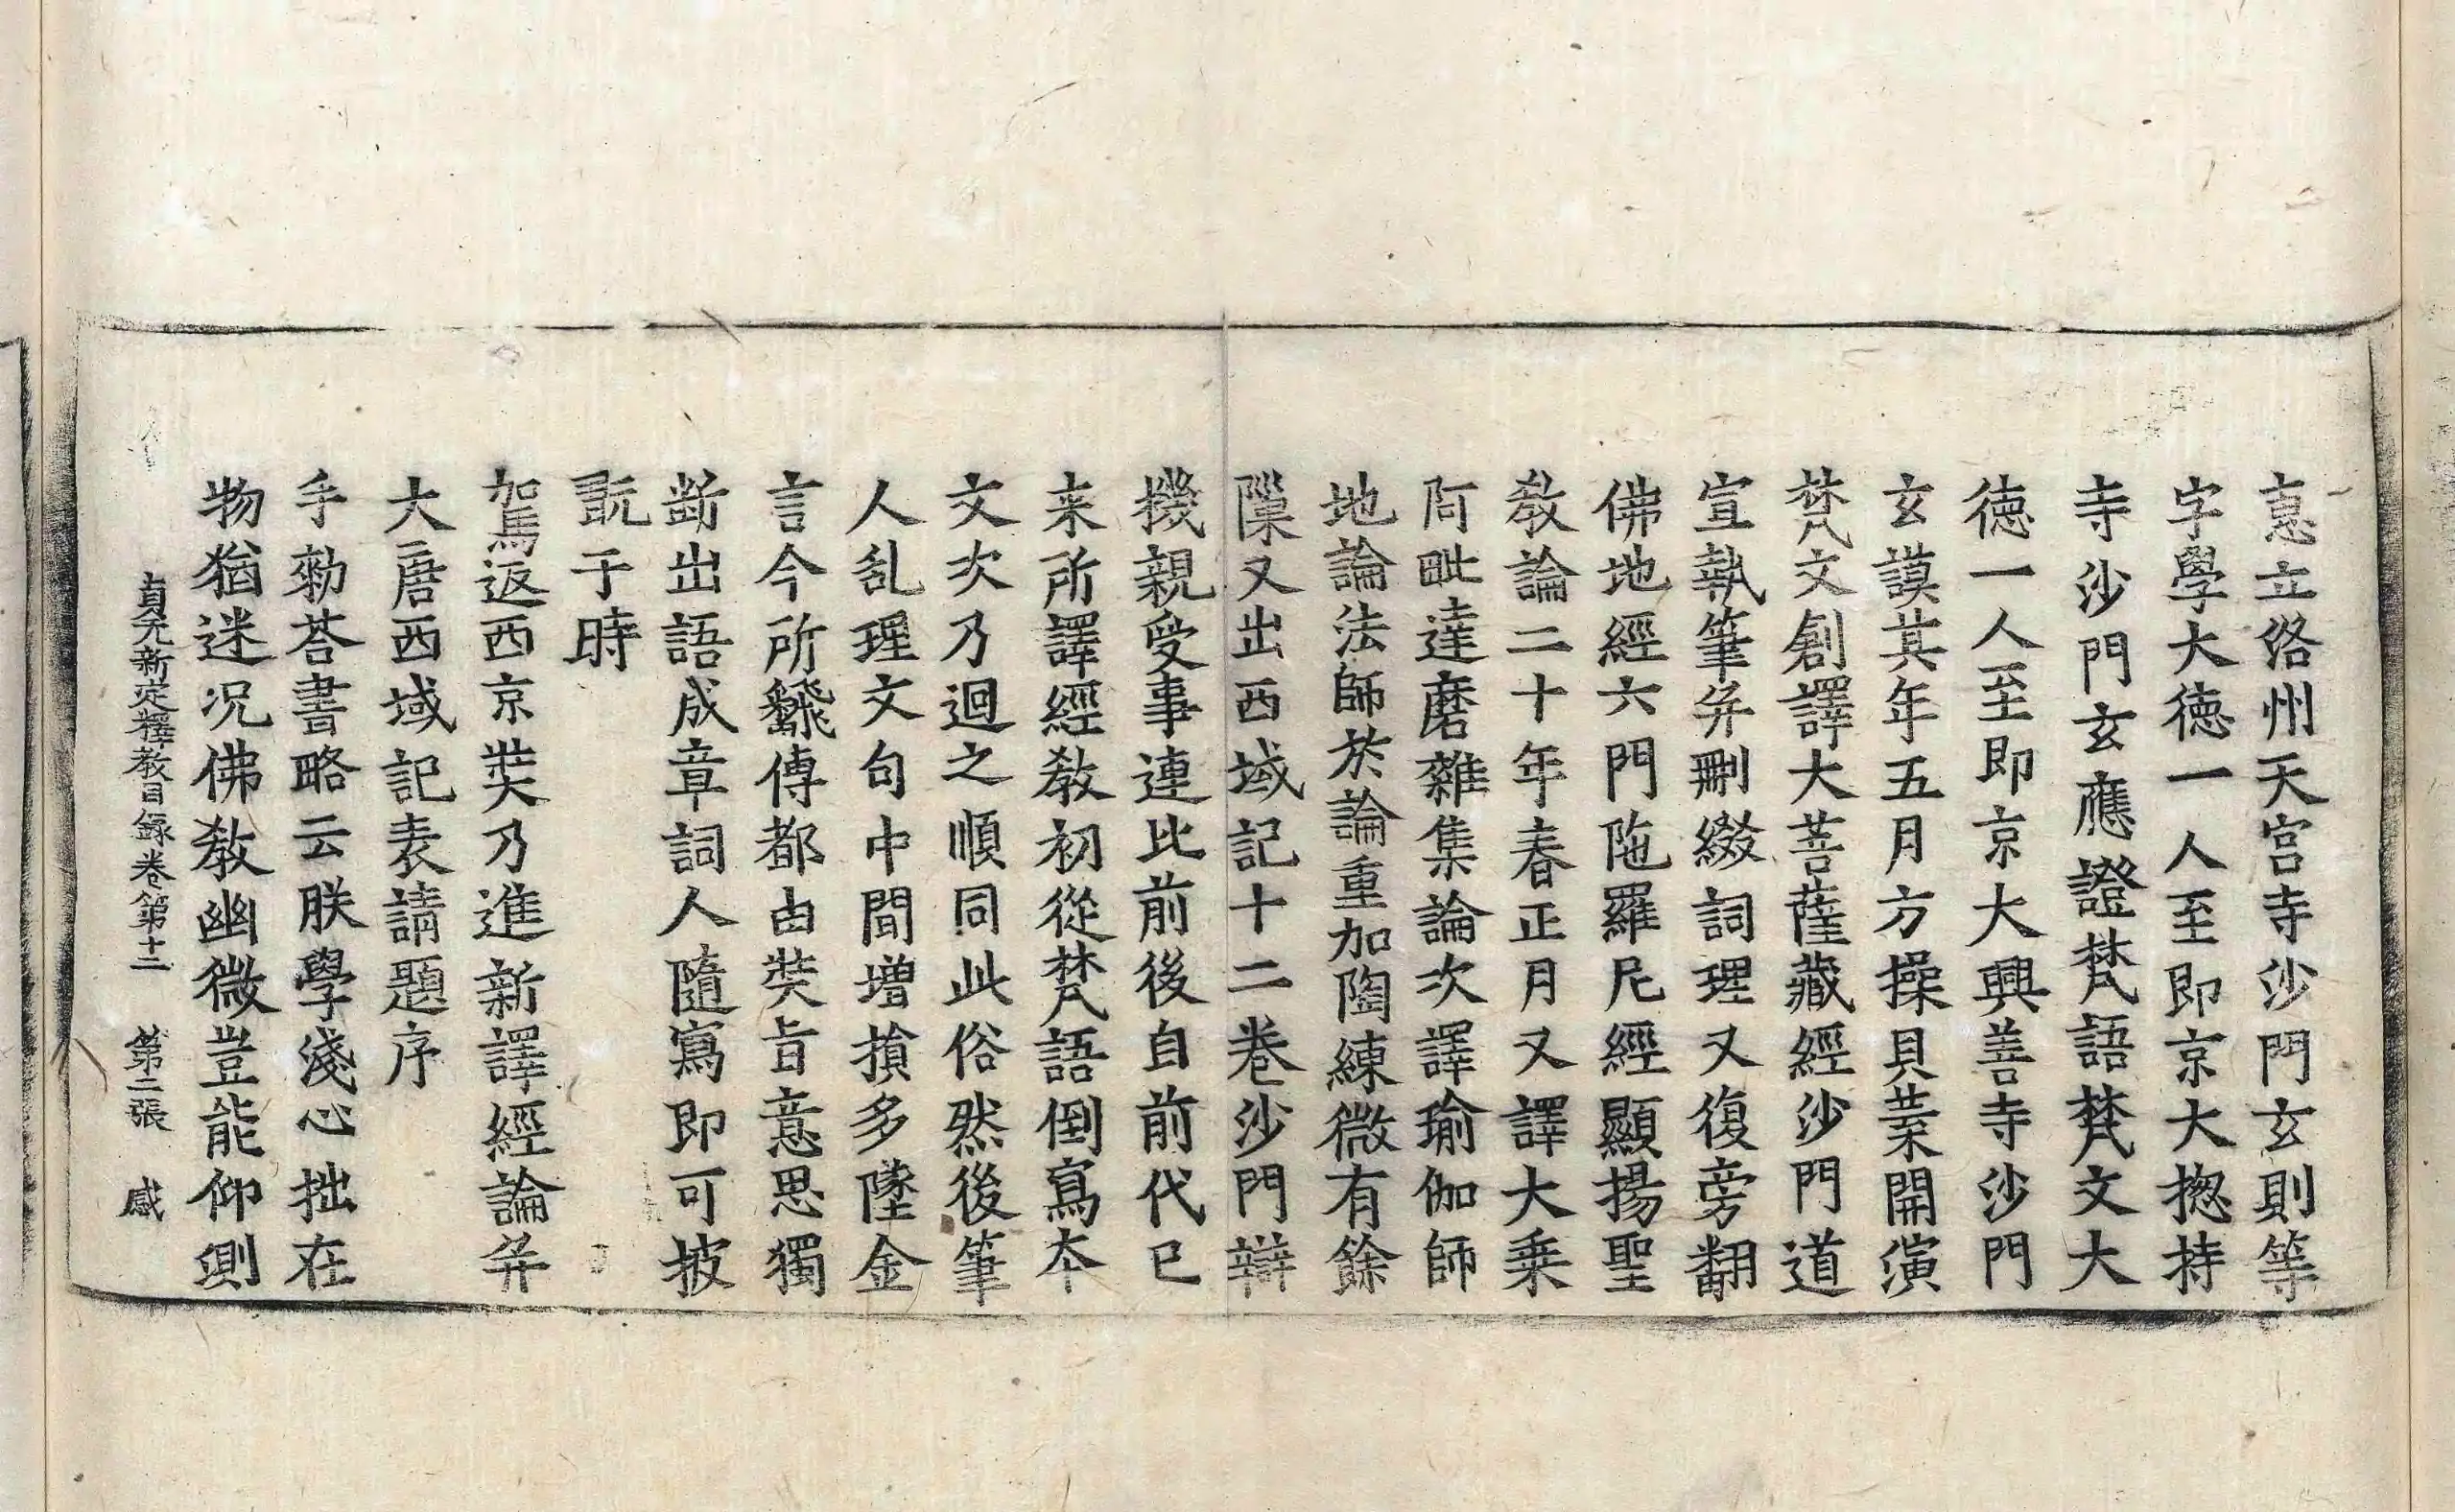 惪立洛州天宮寺沙門玄則等
字學大徳一人至即京大揔持
寺沙門玄應證梵語梵文大
徳一人至即京大興善寺沙門
玄謨其年五月方操貝葉開演
梵文創譯大菩薩藏經沙門道
宣執筆并刪綴詞理又復旁翻
佛地經六門陁羅尼經顯揚聖
教論二十年春正月又譯大乗
阿毗達磨雜集論次譯瑜伽師
地論法師於論重加陶練微有餘
隟又出西域記十二卷沙門辯
機親受事連比前後自前代已
来所譯經教初從梵語倒寫夲
文次乃迴之順同此俗然後筆
人乱理文句中間增損多墜金
言今所飜傳都由奘旨意思獨
断出語成章詞人隨寫即可披
翫于時
駕返西京奘乃進新譯經論并
大唐西域記表請題序
手勑荅書略云朕學淺心拙在
物猶迷况佛教幽微豈能仰測
貞元新定釋教目録卷第十二 第二張 感